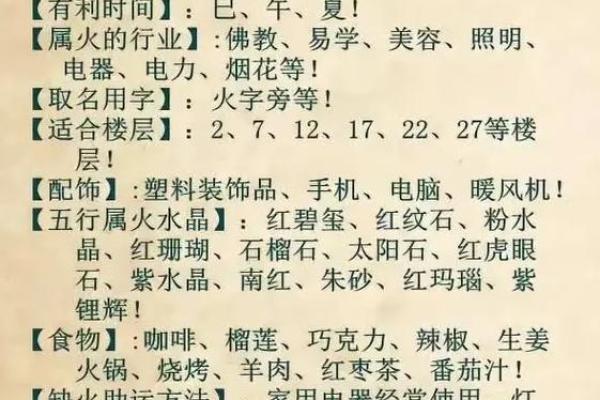 【有利时间】：巳、午、夏！
【属火的行业】:佛教、易学、美容、照明、
电器、电力、烟花等！
【取名用字】：火字旁等！
【适合楼层】：2、7、12、17、22、27等楼
层！
【配饰】:塑料装饰品、手机、电脑、暖风机！
【五行属火水晶】：红碧玺、红纹石、粉水
晶、红珊瑚、石榴石、太阳石、红虎眼
石、紫水晶、南红、朱砂、红玛瑙、紫
锂辉！
【食物】:咖啡、榴莲、巧克力、辣椒、生姜
火锅、烧烤、羊肉、红枣茶、番茄汁！
【缺火助运方法】：家用电器经常使用、灯